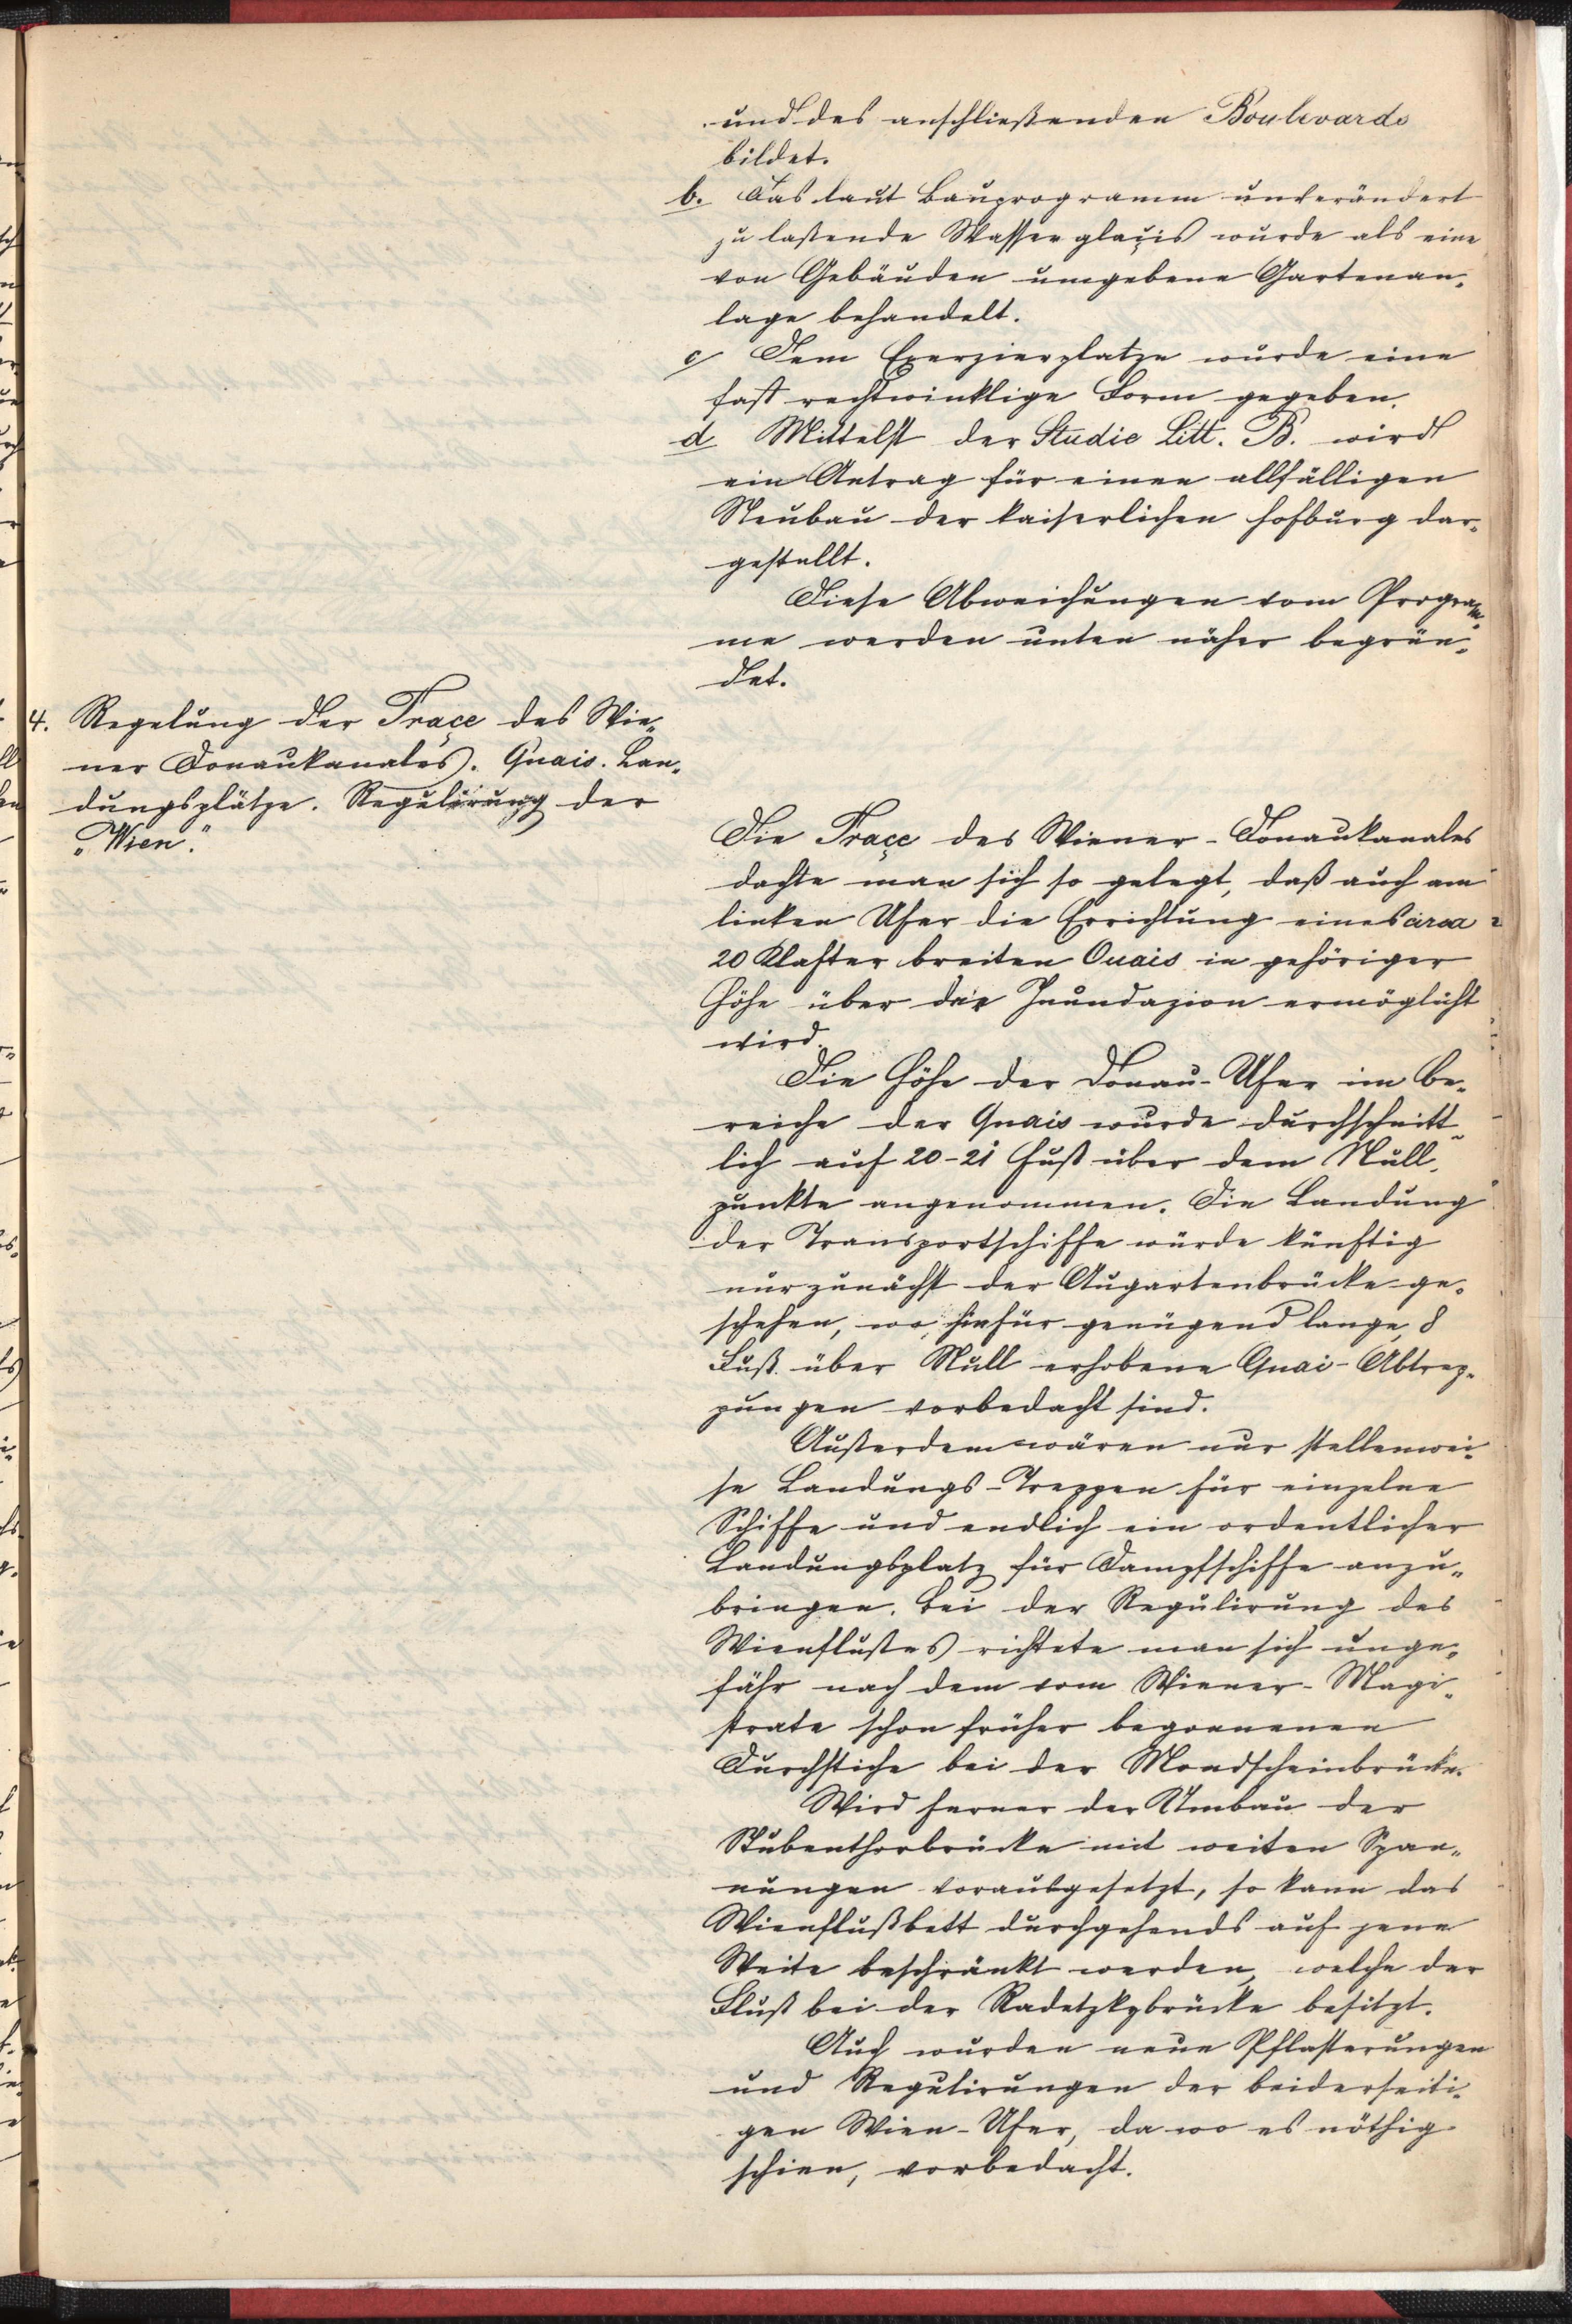 und des anschließenden Boulevards
bildet.
b. Das laut Bauprogramm unverändert
zu laßende Wasserglaçis wurde als eine
von Gebäuden umgebene Gartenan-
lage behandelt.
c Dem Exerzierplatze wurde eine
fast rechtwinklige Form gegeben.
d Mittelst der Studie Litt. B. wird
ein Antrag für einen allfälligen
Neubau der kaiserlichen Hofburg dar-
gestellt.
Diese Abweichungen vom Program-
me werden unten näher begrün-
det.
4. Regelung der Traçe des Wie-
ner Donaukanales. Quais. Lan-
dungsplätze. Regulirung der
„Wien."
Die Traçe des Wiener-Donaukanales
dachte man sich so gelegt, daß auch am
linken Ufer die Errichtung eines circa
20 Klafter breiten Quais in gehöriger
Höhe über der Inundazion ermöglicht
wird.
Die Höhe der Donau-Ufer im Be-
reiche der Quais wurde durchschnitt-
lich auf 20-21 Fuß über dem Null-
punkte angenommen. Die Landung
der Transportschiffe würde künftig
nur zunächst der Augartenbrücke ge-
schehen, wo hiefür genügend lange, 8
Fuß über Null erhobene Quai-Abtrep-
pungen vorbedacht sind.
Außerdem wären nur stellenwei-
se Landungs-Treppen für einzelne
Schiffe und endlich ein ordentlicher
Landungsplatz für Dampfschiffe anzu-
bringen. Bei der Regulirung des
Wienflußes richtete man sich unge-
fähr nach dem vom Wiener-Magi-
strate schon früher begonnenen
Durchstiche bei der Mondscheinbrücke.
Wird ferner der Umbau der
Stubenthorbrücke mit weiten Span-
nungen vorausgesetzt, so kann das
Wienflußbett durchgehends auf jene
Weite beschränkt werden, welche der
Fluß bei der Radetzkybrücke besitzt.
Auch wurden neue Pflasterungen
und Regulirungen der beiderseiti-
gen Wien-Ufer, da wo es nöthig
schien, vorbedacht.